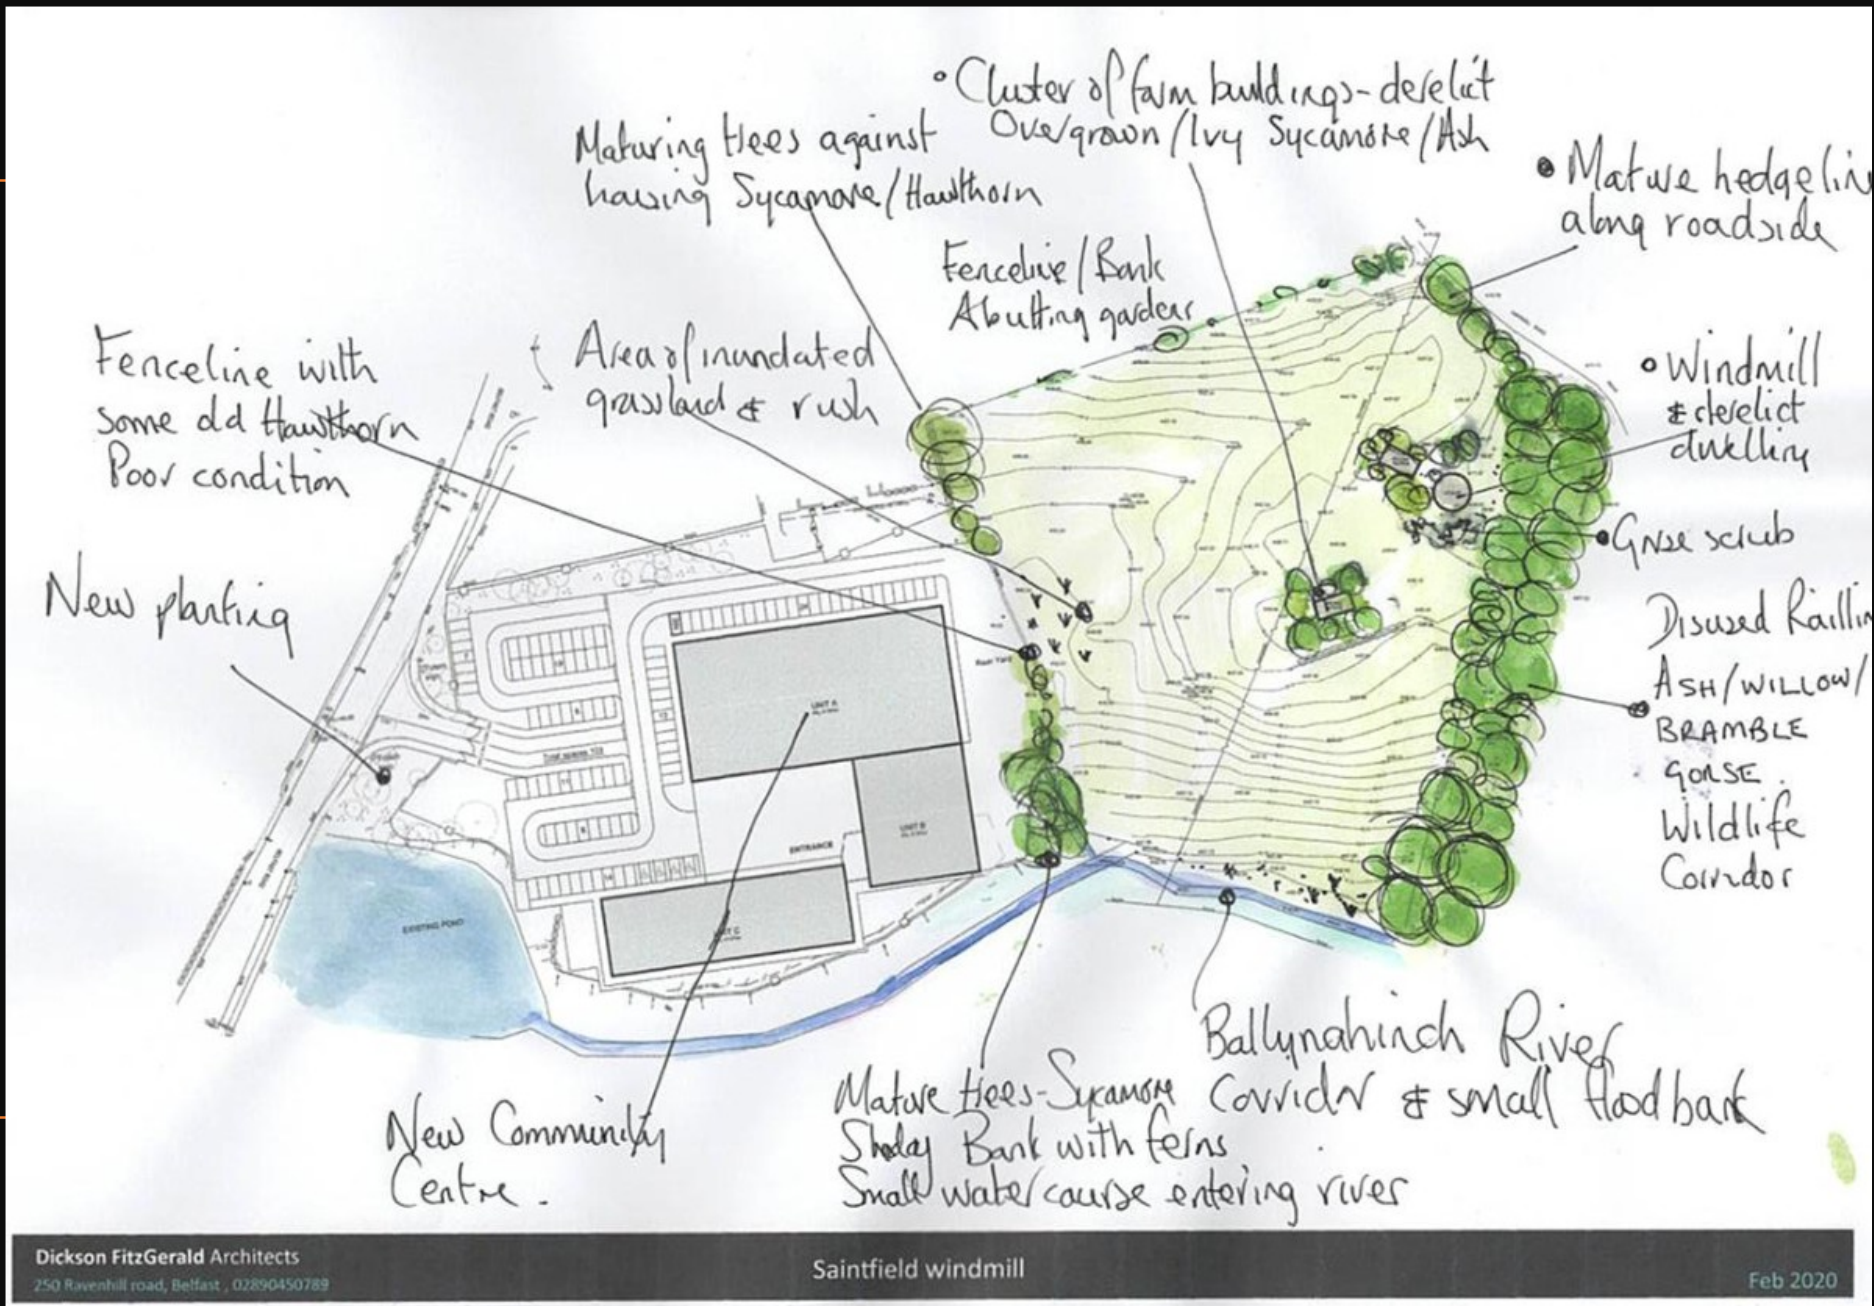 • Cluster of farm buildings - derelict
Overgrown / Ivy Sycamore / Ash
Maturing trees against
housing Sycamore / Hawthorn
• Mature hedgelin
along roadside
Fenceline / Bank
Abutting gardens
Fenceline with
some old Hawthorn
Poor condition
Area of inundated
grassland & rush
• Windmill
& derelict
dwelling
Gorse scrub
New planting
Disused Raillin
ASH / WILLOW /
BRAMBLE
GORSE.
Wildlife
Corridor
UNIT A
UNIT B
ENTRANCE
UNIT C
EXISTING POND
Ballynahinch River
Corridor & small flood bank
Mature trees - Sycamore
Shaday Bank with ferns
Small watercourse entering river
New Community
Centre.
Dickson FitzGerald Architects
250 Ravenhill road, Belfast , 02890450789
Saintfield windmill
Feb 2020